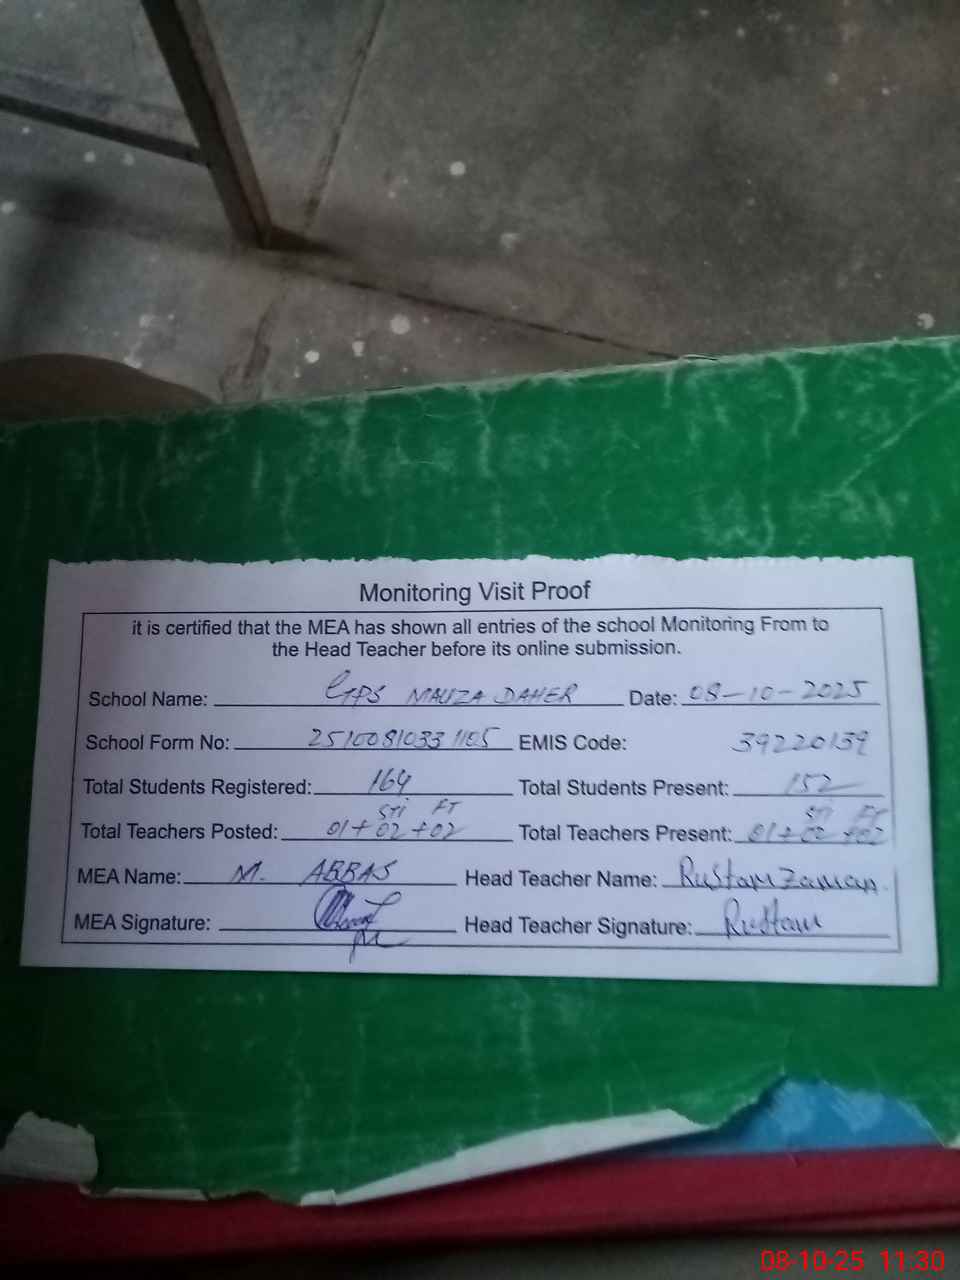 Monitoring Visit Proof
it is certified that the MEA has shown all entries of the school Monitoring From to
the Head Teacher before its online submission.
School Name: GPS MAUZA DAHER Date: 08-10-2025
School Form No: 25100810331105 EMIS Code: 39220139
Total Students Registered: 164 Total Students Present: 152
STI FT STI FT
Total Teachers Posted: 01+02+02 Total Teachers Present: 01+02+02
MEA Name: M. ABBAS Head Teacher Name: Rustam Zaman.
MEA Signature: Head Teacher Signature: Rustam
08-10-25 11:30